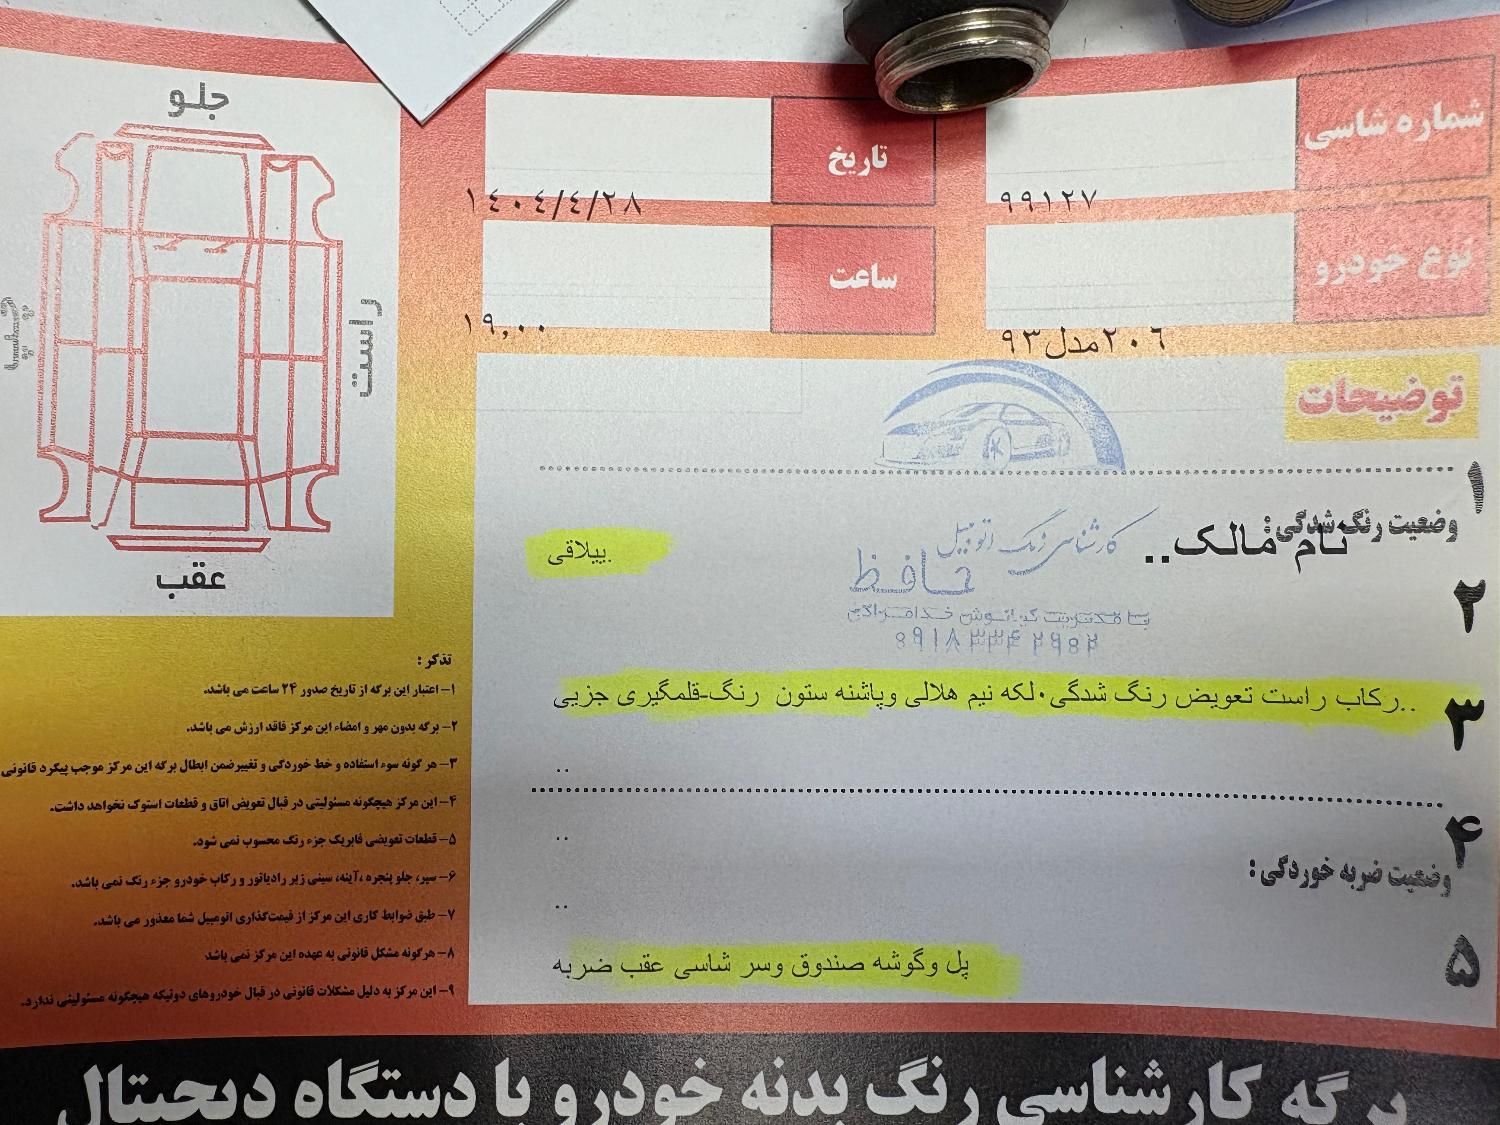 شماره شاسی
۹۹۱۲۷
تاریخ
۱٤۰٤/٤/۲۸
نوع خودرو
۲۰٦مدل۹۳
ساعت
۱۹,۰۰
جلو
راست
چپ
عقب
توضیحات
۱
وضعیت رنگ شدگی:
نام مالک..
ییلاقی
کارشناسی رنگ اتومبیل
حافظ
با مدیریت کیانوش خدامرادی
۰۹۱۸۳۳۴۲۹۵۲
۲
۳
..رکاب راست تعویض رنگ شدگی۰لکه نیم هلالی وپاشنه ستون رنگ-قلمگیری جزیی
..
۴
..
وضعیت ضربه خوردگی:
..
۵
پل وگوشه صندوق وسر شاسی عقب ضربه
تذکر:
۱- اعتبار این برگه از تاریخ صدور ۲۴ ساعت می باشد.
۲- برگه بدون مهر و امضاء این مرکز فاقد ارزش می باشد.
۳- هر گونه سوء استفاده و خط خوردگی و تغییرضمن ابطال برگه این مرکز موجب پیگرد قانونی
۴- این مرکز هیچگونه مسئولیتی در قبال تعویض اتاق و قطعات استوک نخواهد داشت.
۵- قطعات تعویضی فابریک جزء رنگ محسوب نمی شود.
۶- سپر، جلو پنجره ،آینه، سینی زیر رادیاتور و رکاب خودرو جزء رنگ نمی باشد.
۷- طبق ضوابط کاری این مرکز از قیمت‌گذاری اتومبیل شما معذور می باشد.
۸- هرگونه مشکل قانونی به عهده این مرکز نمی باشد
۹- این مرکز به دلیل مشکلات قانونی در قبال خودروهای دوتیکه هیچگونه مسئولیتی ندارد.
برگه کارشناسی رنگ بدنه خودرو با دستگاه دیجیتال